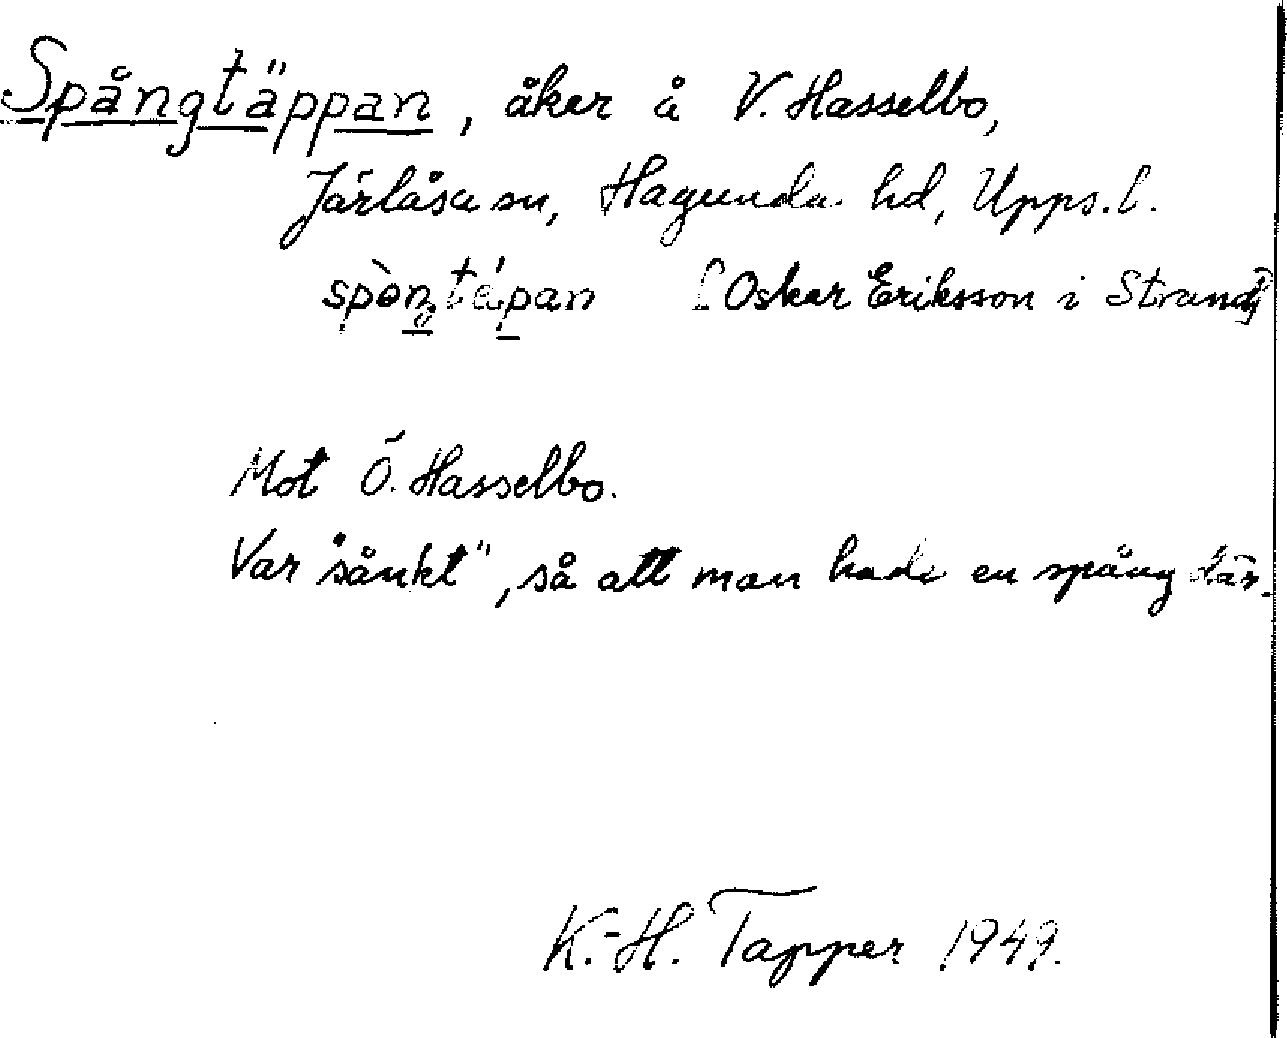 Spångtäppan, åker å V. Hasselbo,
Järlåsa sn, Hagunda hd, Upps. l.
spòŋtépan [Oskar Eriksson i Strand]
Mot Ö. Hasselbo.
Var "sånkt", så att man hade en spång där.
K.-H. Tapper 1949.